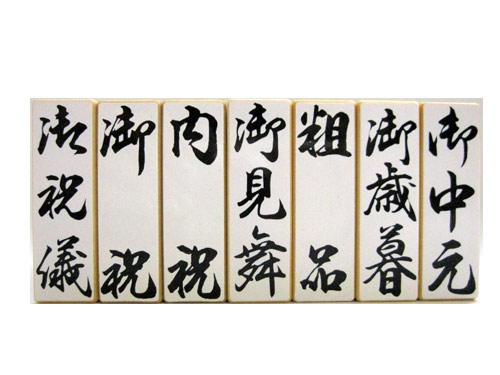 御中元
御歳暮
粗品
御見舞
内祝
御祝
御祝儀